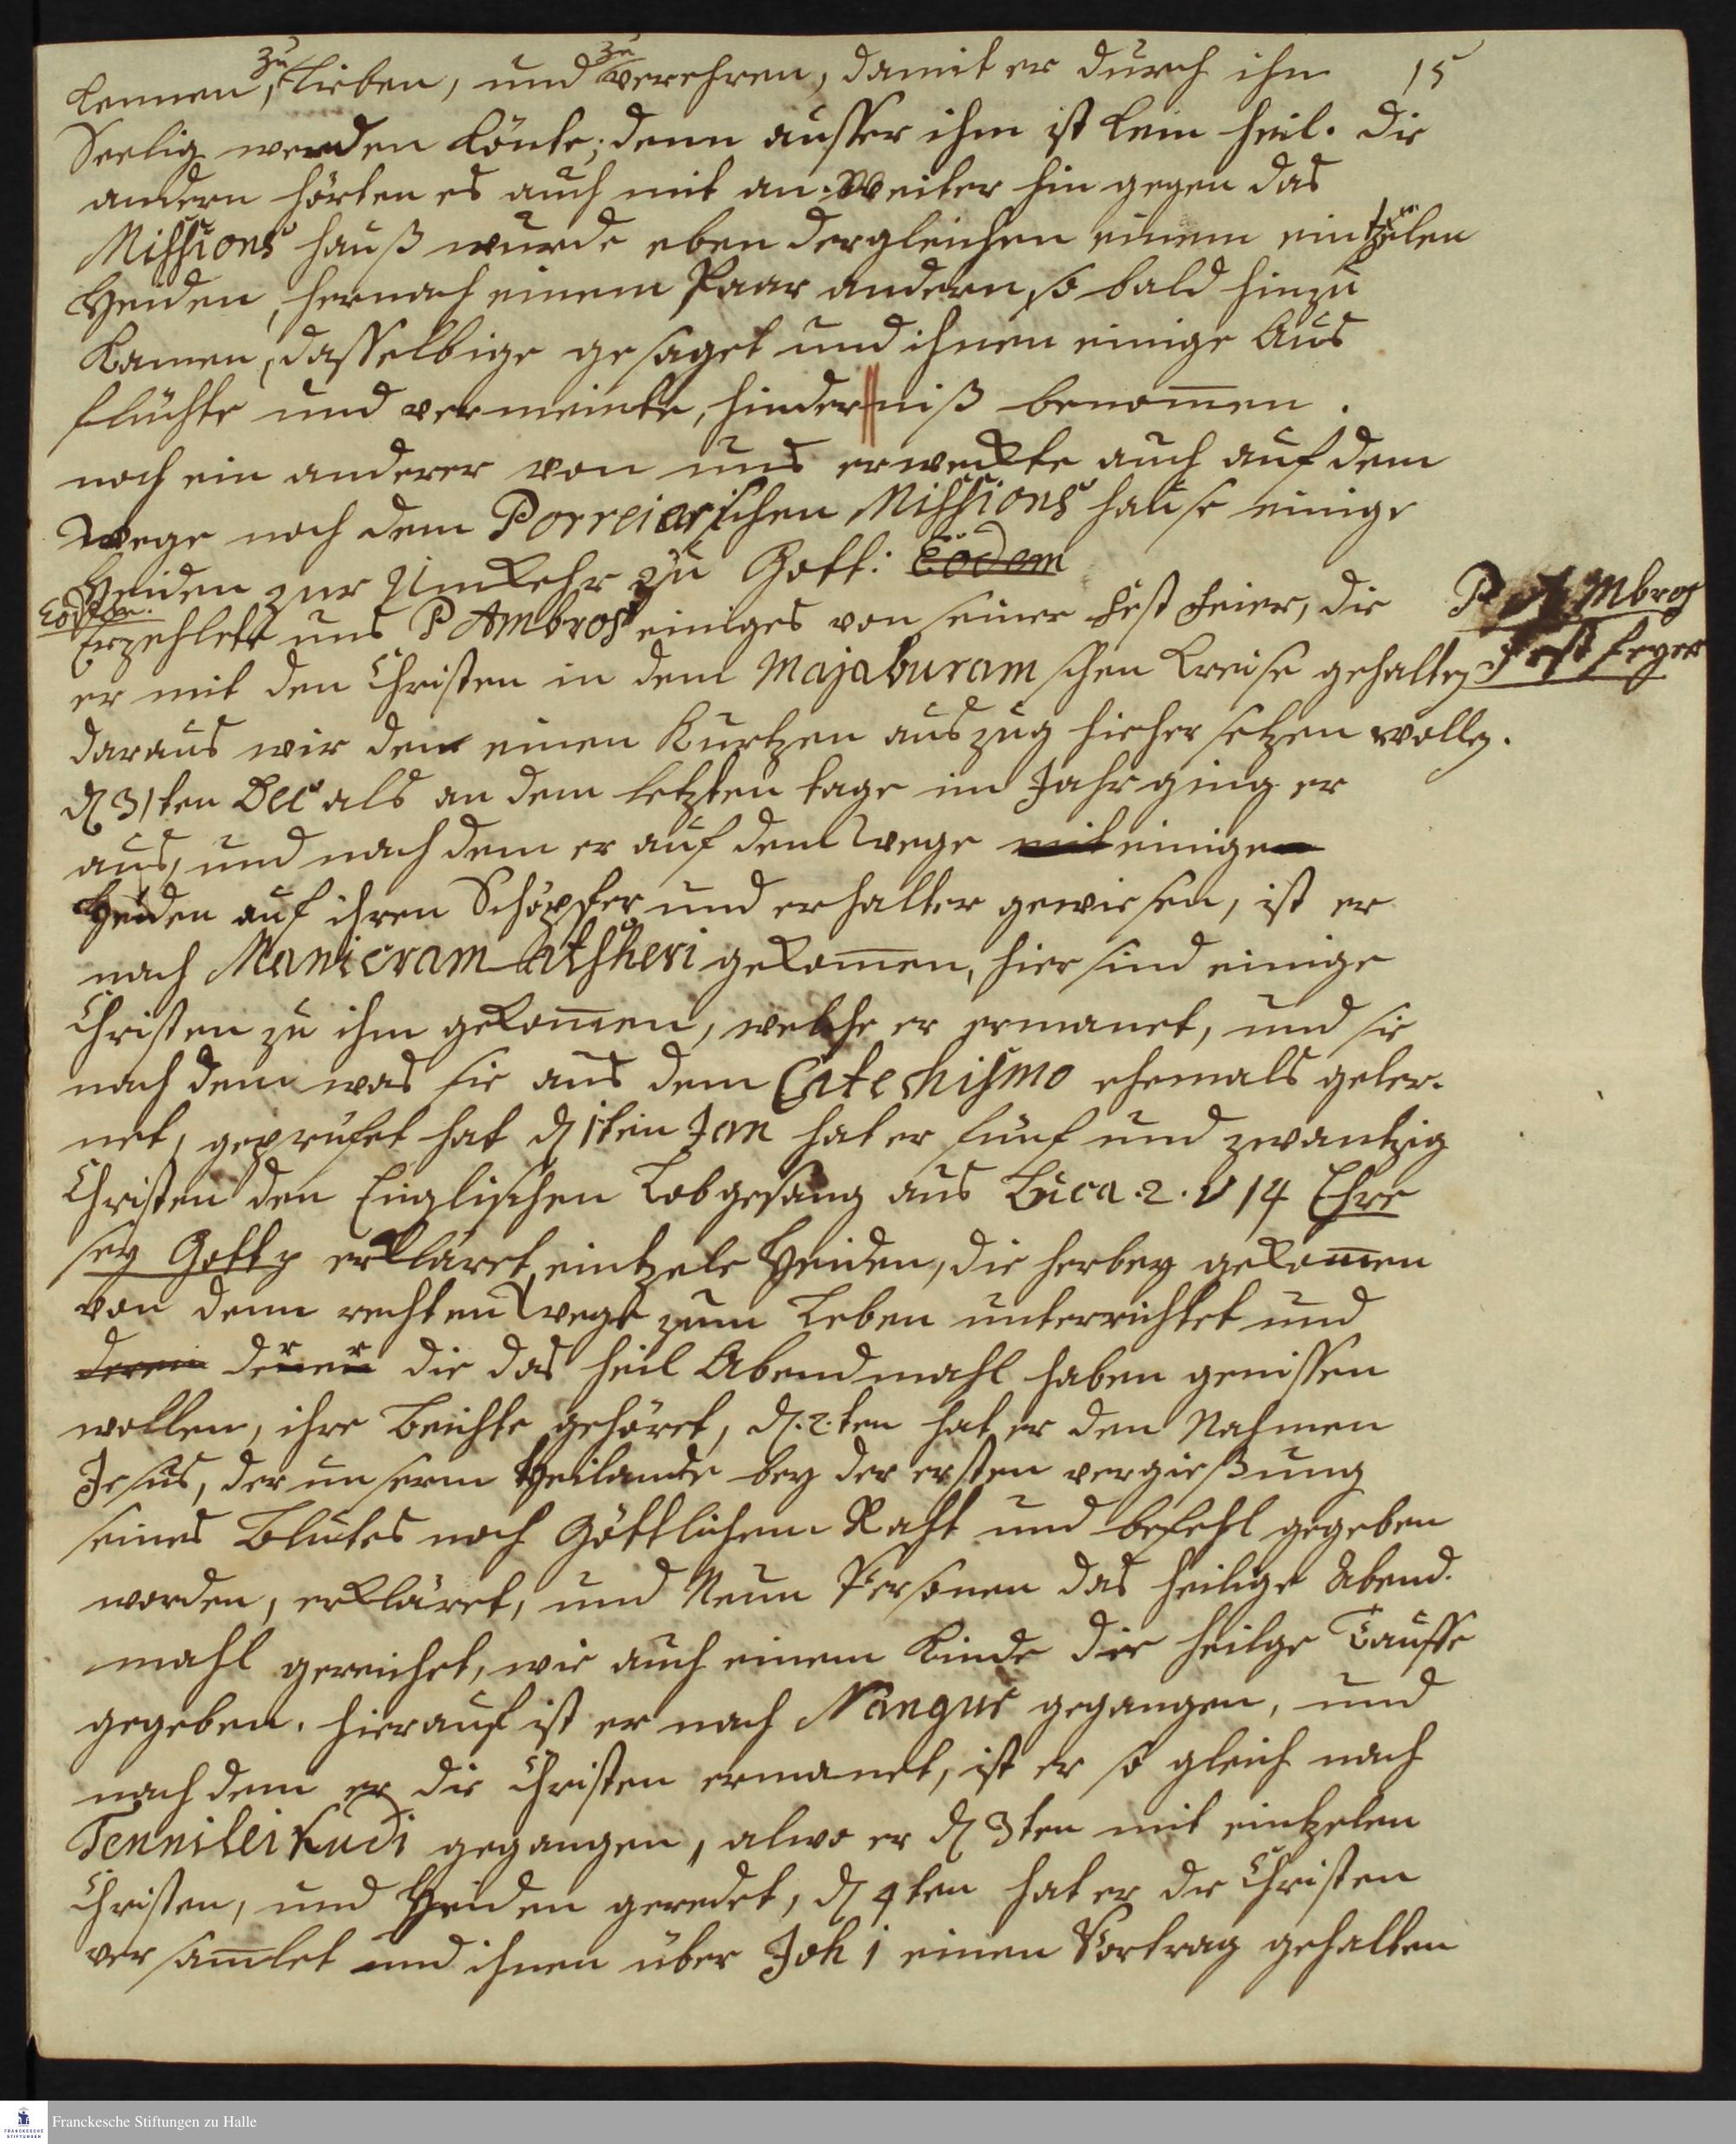 15
kennen, zu lieben, und zu verehren, damit er durch ihn
Seelig werden könte; denn ausser ihm ist kein heil. die
andern hörten es auch mit an. Weiter hin gegen das
Missions hauß wurde eben dergleichen einem eintzelen
Heiden, hernach einem Paar andern, so bald hinzu
kamen, dasselbige gesaget und ihnen einige Aus
flüchte und vermeinte, hinderniß benom̅en.
noch ein anderer von uns erweckte auch auf dem
wege nach dem Porreiarischen Missions hause einige
Heiden zur Umkehr zu Gott. Eodem
Eodem.
Erzehlete uns P Ambros einiges von seiner Fest Feier, die
P Ambros
Fest feyer
er mit den Christen in dem Majaburam schen Kreise gehalten
daraus wir den einen Kurtzen auszug hieher setzen wollen.
d 31ten Dec als an dem letzten tage im Jahr ging er
aus, und nach dem er auf dem wege mit einigen
Heiden auf ihren Schöpfer und erhalter gewiesen, ist er
nach Manicramatsheri gekom̅en, hier sind einige
Christen zu ihm gekom̅en, welche er ermanet, und sie
nach dem was sie aus dem Catechismo ehemals geler-
net, geprüfet hat d 1ten Jan hat er fünf und zwantzig
Christen den Englischen Lobgesang aus Luca. 2. v 14 Ehre
sey Gott p erkläret, eintzele Heiden, die herbey gekom̅en
von denn rechten Wege zum Leben unterrichtet und
deren derer die das heil Abendmahl haben genissen
wollen, ihre Beichte gehöret, d. 2.ten hat er den Nahmen
Jesus, der unserm Heilande bey der ersten vergießung
seines Blutes nach Göttlichem Raht und befehl gegeben
worden, erkläret, und Neun Personen das heilige Abend-
mahl gereichet, wie auch einem Kinde die heilge Tauffe
gegeben. hierauf ist er nach Nangur gegangen, und
nach dem er die Christen ermanet, ist er so gleich nach
Tennileikudi gegangen, alwo er d 3ten mit eintzelen
Christen, und Heiden geredet, d 4ten hat er die Christen
versam̅let und ihnen über Joh 1 einen Vortrag gehalten
Franckesche Stiftungen zu Halle
FRANCKESCHE
STIFTUNGEN